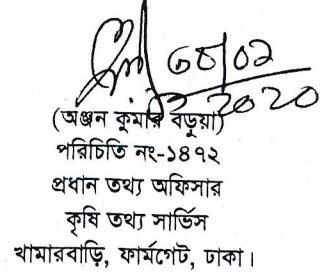 (অঞ্জন কুমার বড়ুয়া)
পরিচিতি নং-১৪৭২
প্রধান তথ্য অফিসার
কৃষি তথ্য সার্ভিস
খামারবাড়ি, ফার্মগেট, ঢাকা।